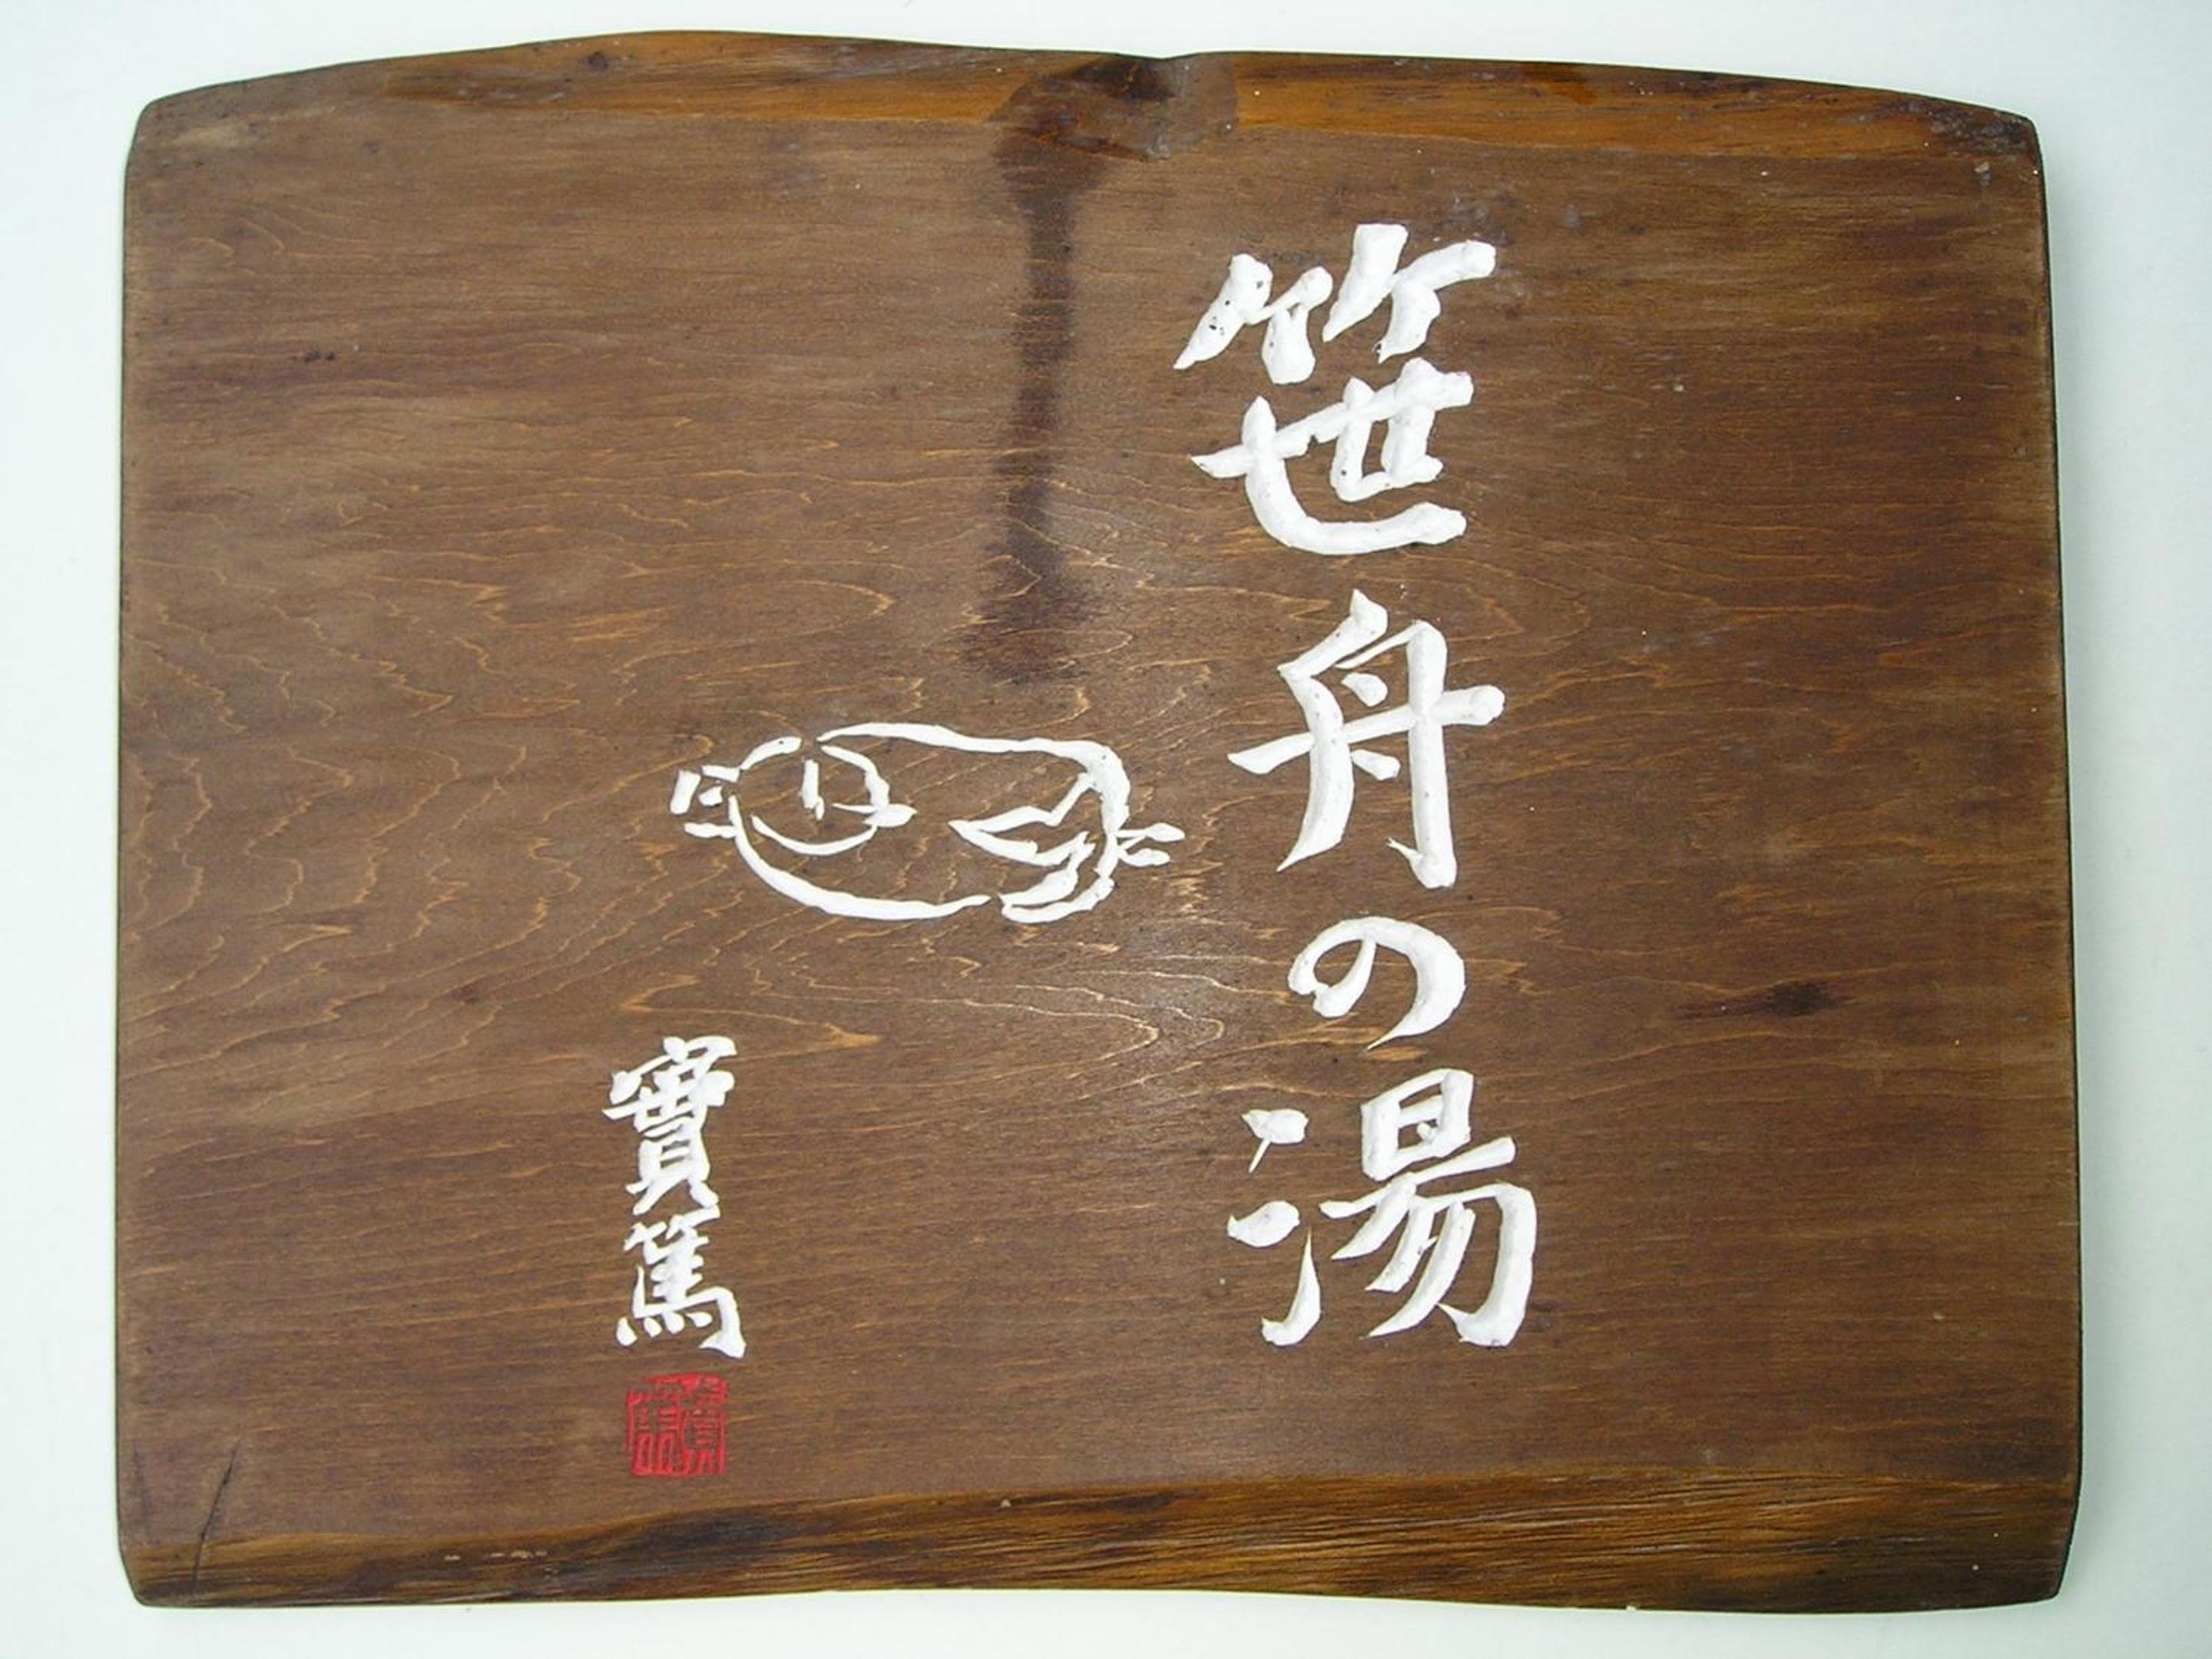 笹舟の湯
實篤